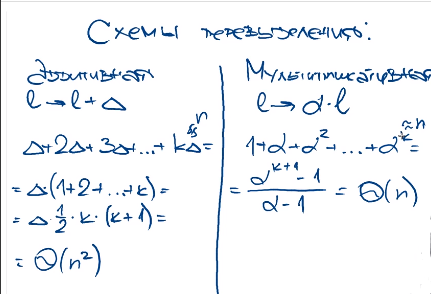 Схемы перевыделения:
Аддитивная
l → l + Δ
n
Δ+2Δ+3Δ+...+kΔ=
= Δ(1+2+...+k)=
= Δ 1/2 · k · (k+1)=
= Θ(n²)
Мультипликативная
l → α·l
≈n
1+α+α²+...+α^k=
= (α^(k+1) - 1)/(α - 1) = Θ(n)